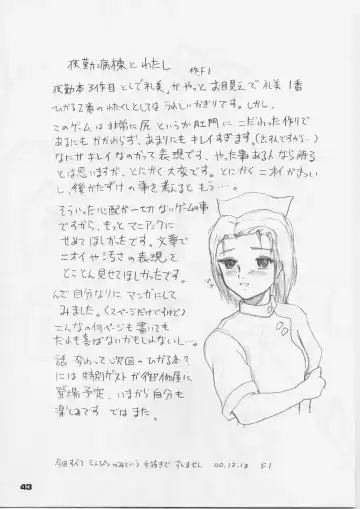 夜勤病棟とわたし 作F1
夜勤本3作目として"礼美"がやっとお目見えで礼美1番
ひかる2番のわたくしとしてはうれしいかぎりです。しかし、
このゲームは非常に尻というか肛門にこだわった作りで
あるにもかかわらず、あまりにもキレイすぎます。(出すんですが…)
なにがキレイなのかって表現です。やった事ある人なら解る
とは思いますが、とにかく大変です。とにかくニオイがきつい
し、後かたずけの事を考えるともう…。
そういった心配が一切ないゲームの事
ですから、もっとマニアックに
せめてほしかったです。文章で
ニオイや汚さの表現を
とことん見せてほしかったです。
んで自分なりにマンガにして
みました。(2ページだけですけど)
こんなの何ページも書いても
だれも喜ばないかもしれないし…。
話変わって次回のひかる本?
には特別ゲストが御伽屋に
登場予定、いまから自分も
楽しみです ではまた。
今回すべてえんぴつのみという手抜きですいません 00.12.13 F1
43